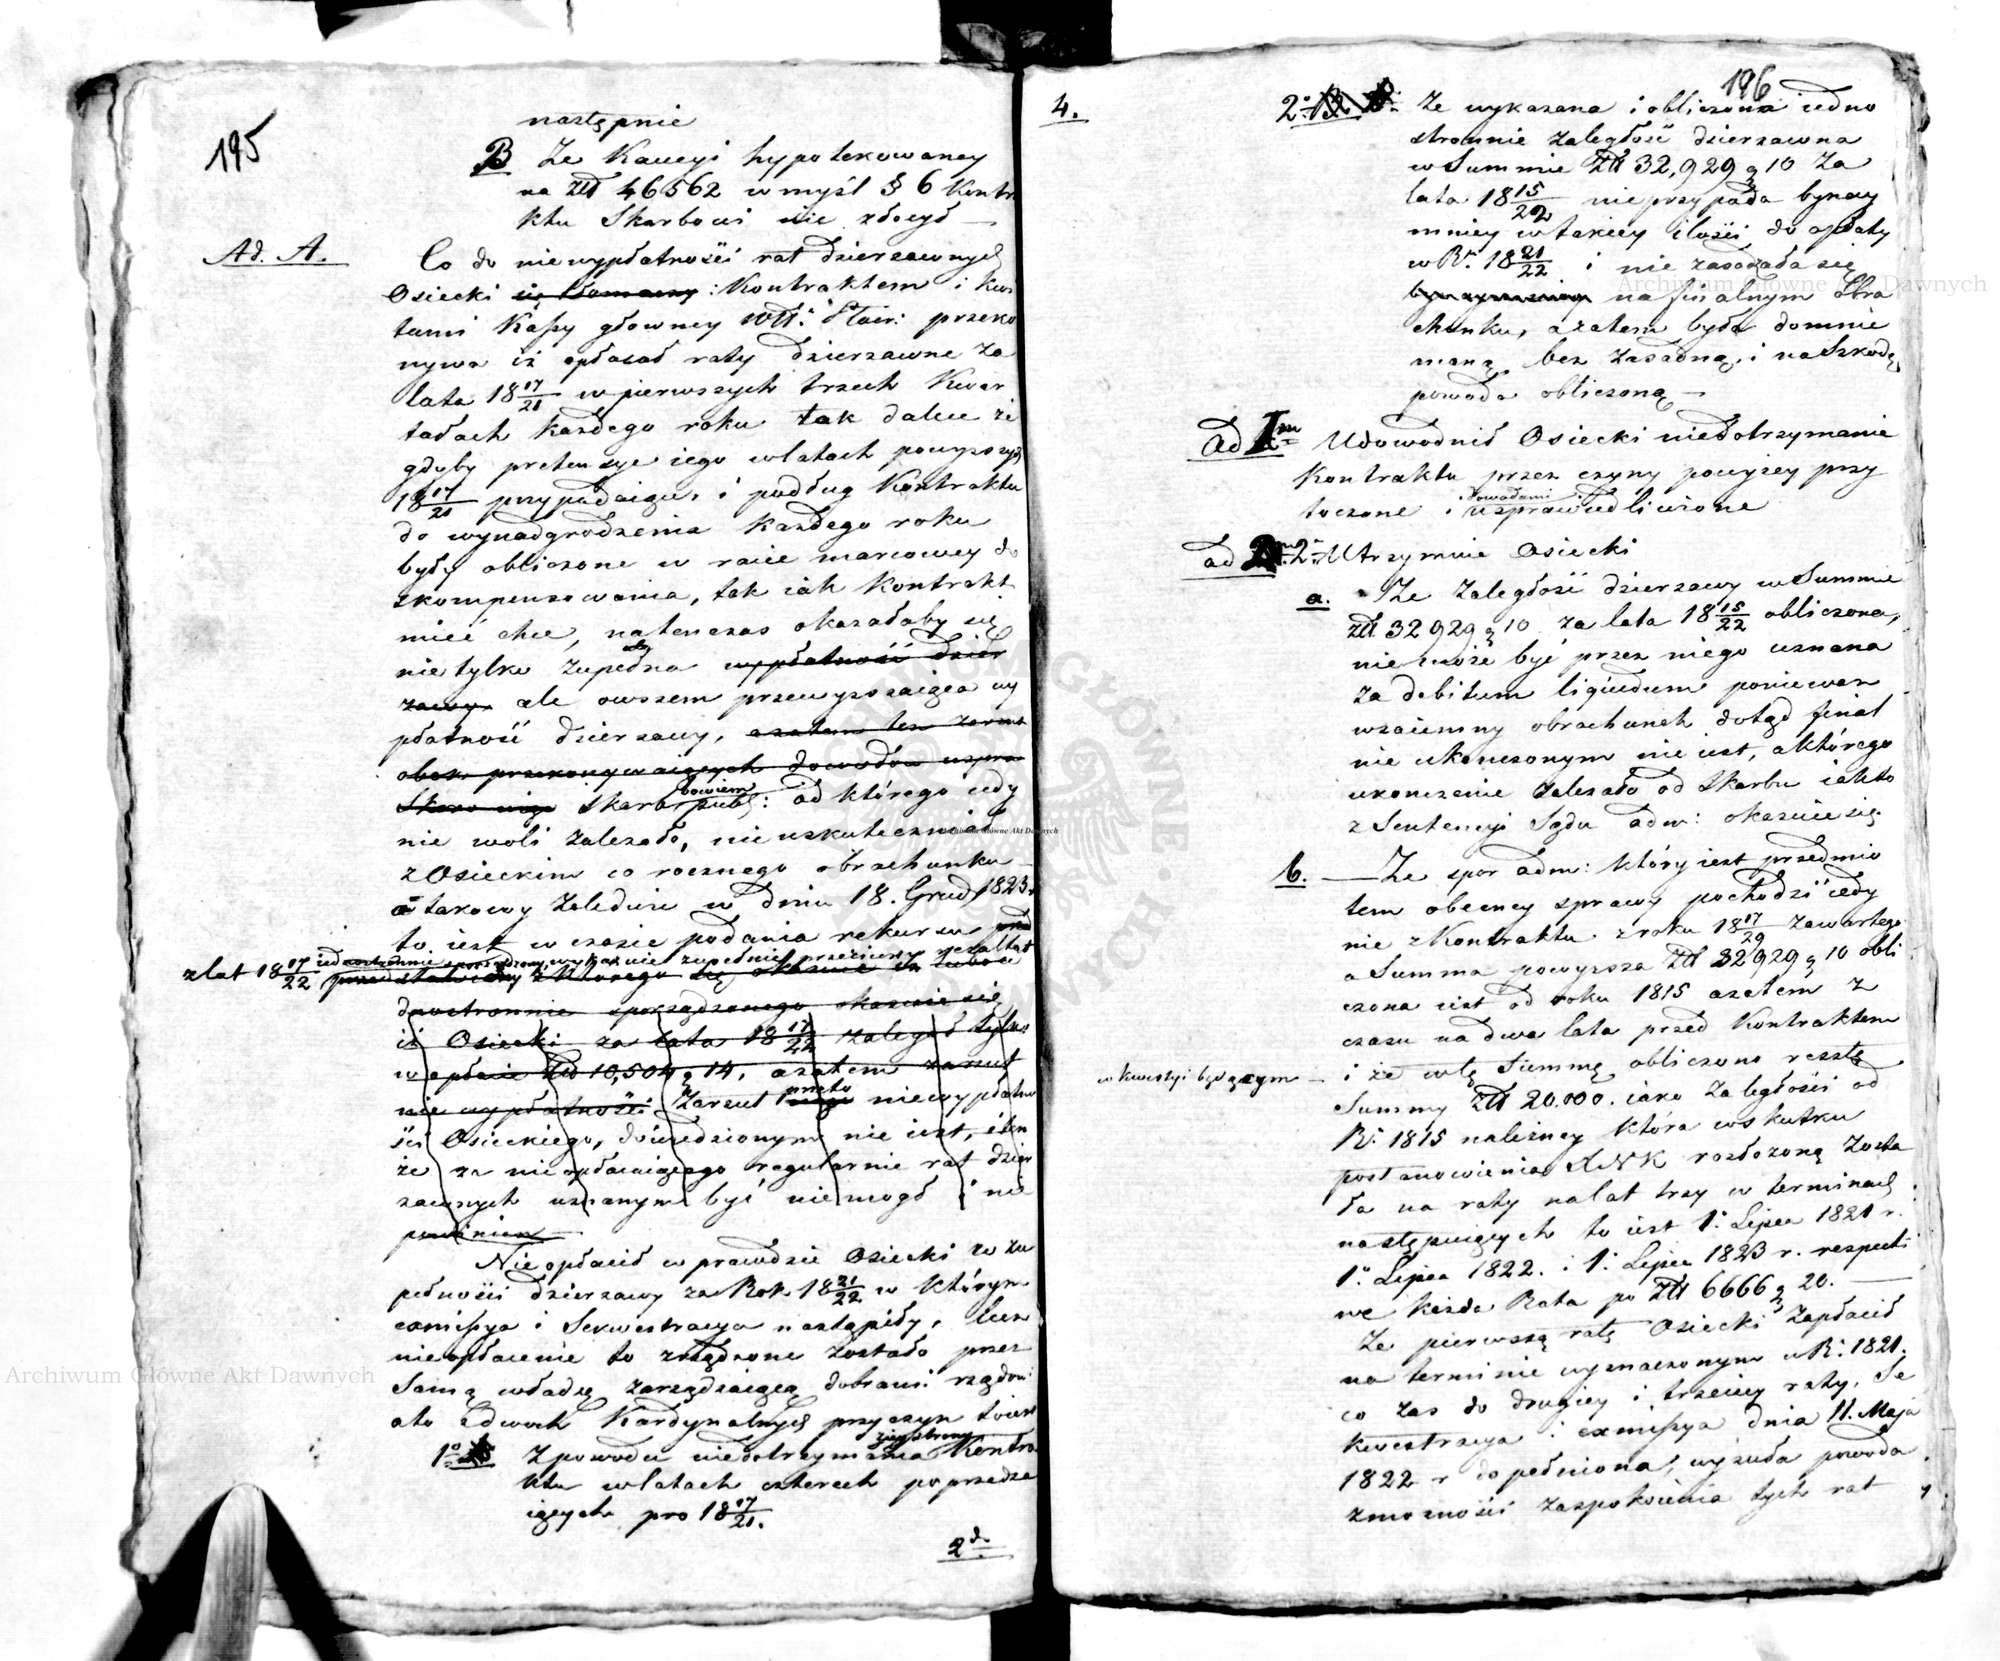 195
następnie
B Ze Kaucyi hypotekowaney
na Złł 46562 w myśl § 6 Kontra
ktu Skarbowi nie złożył —
Ad. A.
Co do niewypłatności rat dzierzawnych
Osiecki się tłomaczy: Kontraktem i kwi
tami Kassy główney przeko
nywa iż opłacał raty dzierzawne za
lata 18 17/21 w pierwszych trzech Kwar
tałach każdego roku tak dalece że
gdyby pretensye iego w latach powyższych
18 17/21 przypadaiące, i podług Kontraktu
do wynadgrodzenia każdego roku
były obliczone w racie marcowey do
skompensowania, tak iak Kontrakt
mieć chce, natenczas okazałaby się
nie tylko zupełna wypłatność dzier
zawy ale owszem przewyższaiąca wy
płatność dzierzawy, a zatem ten zarzut
obok przekonywaiących dowodów uspra
Skarb bowiem publ: od którego iedy
nie woli zależało, nieuskuteczniał
z Osieckim corocznego obrachunku —
a takowy zaledwie w dniu 18. Grud 1823 r
to iest w czasie podania rekursu
z lat 18 17/22 iednostronnie sporządzony wykazuie zupełnie przeciwny rezultat
przedstawiony z którego się okazuie iż
dwustronnie sporządzonego okazuie się
iż Osiecki za lata 18 17/22 zaległ tylko
w opłacie Złł 10,504 g 14, a zatem zarzut
niewypłatności Zarzut przeto niewypłatno
ści Osieckiego, dowiedzionym nie iest, i ten
że za nieopłacaiącego regularnie rat dzier
zawnych uznanym być niemogł i nie
powinien —
Nie opłacił wprawdzie Osiecki w zu
pełności dzierzawy za Rok 18 21/22 w którym
exmissya i Sekwestracya nastąpiły, lecz
nieopłacenie to zrządzone zostało przez
Samą władzę zarządzaiącą dobrami rządow:
a to z dwóch kardynalnych przyczyn
1o Z powodu niedotrzymania Kontra
ktu w latach czterech poprzedza
iących pro 18 17/21.
2d.
4.
196
2o Ze wykazana i obliczona iedno
stronnie zaległość dzierzawna
w Summie Złł 32,929 g 10 za
lata 18 15/22 nie przypada bynay
mniey w takiey ilości do opłaty
w Rk. 18 21/22 i nie zasadzała się
bynaymniey na finalnym Obra
chunku, a zatem była domnie
maną, bez zasadną, i na Szkodę
powoda obliczoną —
Ad I m Udowodnił Osiecki niedotrzymanie
Kontraktu przez czyny powyżey przy
toczone i dowodami usprawiedliwione
ad 2o Utrzymuie Osiecki
a. Ze Zaległość dzierzawy w Summie
Złł 32929 g 10 za lata 18 15/22 obliczona,
nie może być przez niego uznana
za debitum liquidum poniewaz
wzaiemny obrachunek dotąd finał
nie ukończonym nie iest, a którego
ukończenie zależało od Skarbu iak to
z Sentencyi Sądu adm: okazuie się.
b. — Ze spor adm: który iest przedmio
tem obecney sprawy pochodzi iedy
nie z Kontraktu z roku 18 17/29 zawartego
a Summa powyższa Złł 32929 g 10 obli
czona iest od roku 1815 a zatem z
czasu na dwa lata przed Kontraktem
w kwestyi będącym —
i że w tę Summę obliczono resztę
Summy Złł 20.000. iako Zaległości od
R: 1815 należney która wskutku
postanowienia rozłożoną zosta
ła na raty na lat trzy w terminach
następuiących to iest 1o Lipca 1821 r.
1o Lipca 1822. i 1o Lipca 1823 r. respecti
ve każda Rata po Złł 6666 g 20. —
Ze pierwszą ratę Osiecki Zapłacił
na terminie wyznaczonym w R: 1821.
co zas do drugiey i trzeciey raty, Se
kwestracya i exmissya dnia 11. Maja
1822 r dopełniona, wyzuła powoda
z możności zaspokoienia tych rat
Archiwum Główne Akt Dawnych
Archiwum Główne Akt Dawnych
Archiwum Główne Akt Dawnych